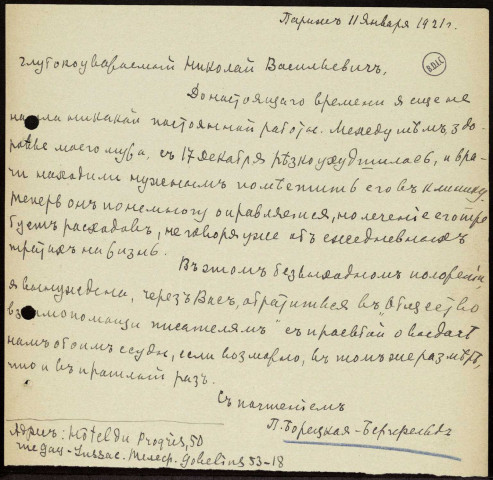 Парижъ 11 Января 1921 г.
Глубокоуважаемый Николай Васильевичъ,
B.D.I.C
До настоящаго времени я еще не
нашла никакой постоянной работы. Между тѣмъ, здо-
ровье моего мужа, съ 17 декабря рѣзко ухудшилось, и вра-
чи находили нужнымъ помѣстить его въ клинику.
Теперь онъ понемногу оправляется, но леченіе его тре
буетъ расходовъ, не говоря уже объ ежедневныхъ
тратахъ на жизнь.
Въ этомъ безвыходномъ положеніи,
я вынуждена, черезъ Васъ, обратиться въ "Общество
взаимопомощи писателямъ" съ просьбой о выдачѣ
намъ обоимъ ссуды, если возможно, въ томъ же размѣрѣ,
что и въ прошлый разъ.
Съ почтеніемъ
П. Борецкая-Бергфельдъ
Адресъ: Hôtel du Progrès, 50
Телеф. Gobelins 53-18